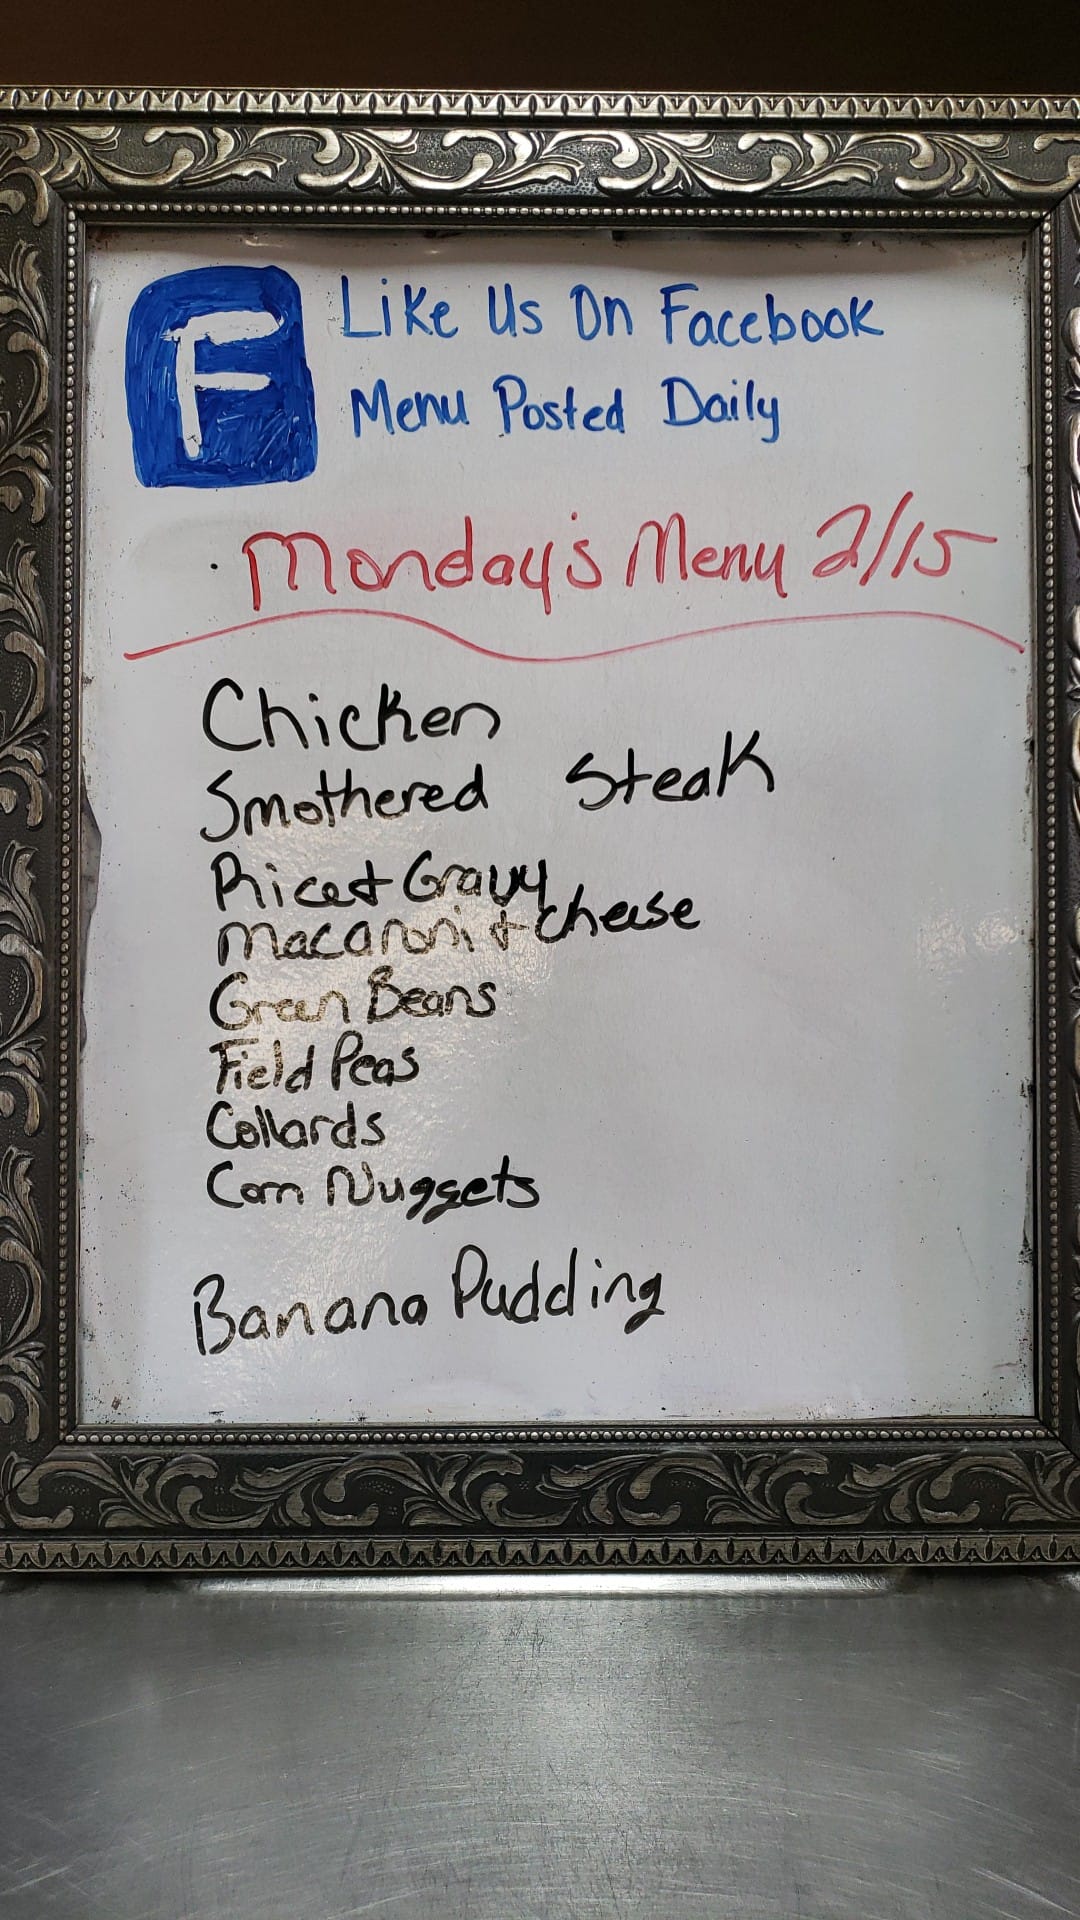 F
Like Us On Facebook
Menu Posted Daily
Monday's Menu 2/15
Chicken
Smothered Steak
Rice + Gravy
Macaroni + cheese
Green Beans
Field Peas
Collards
Corn Nuggets
Banana Pudding